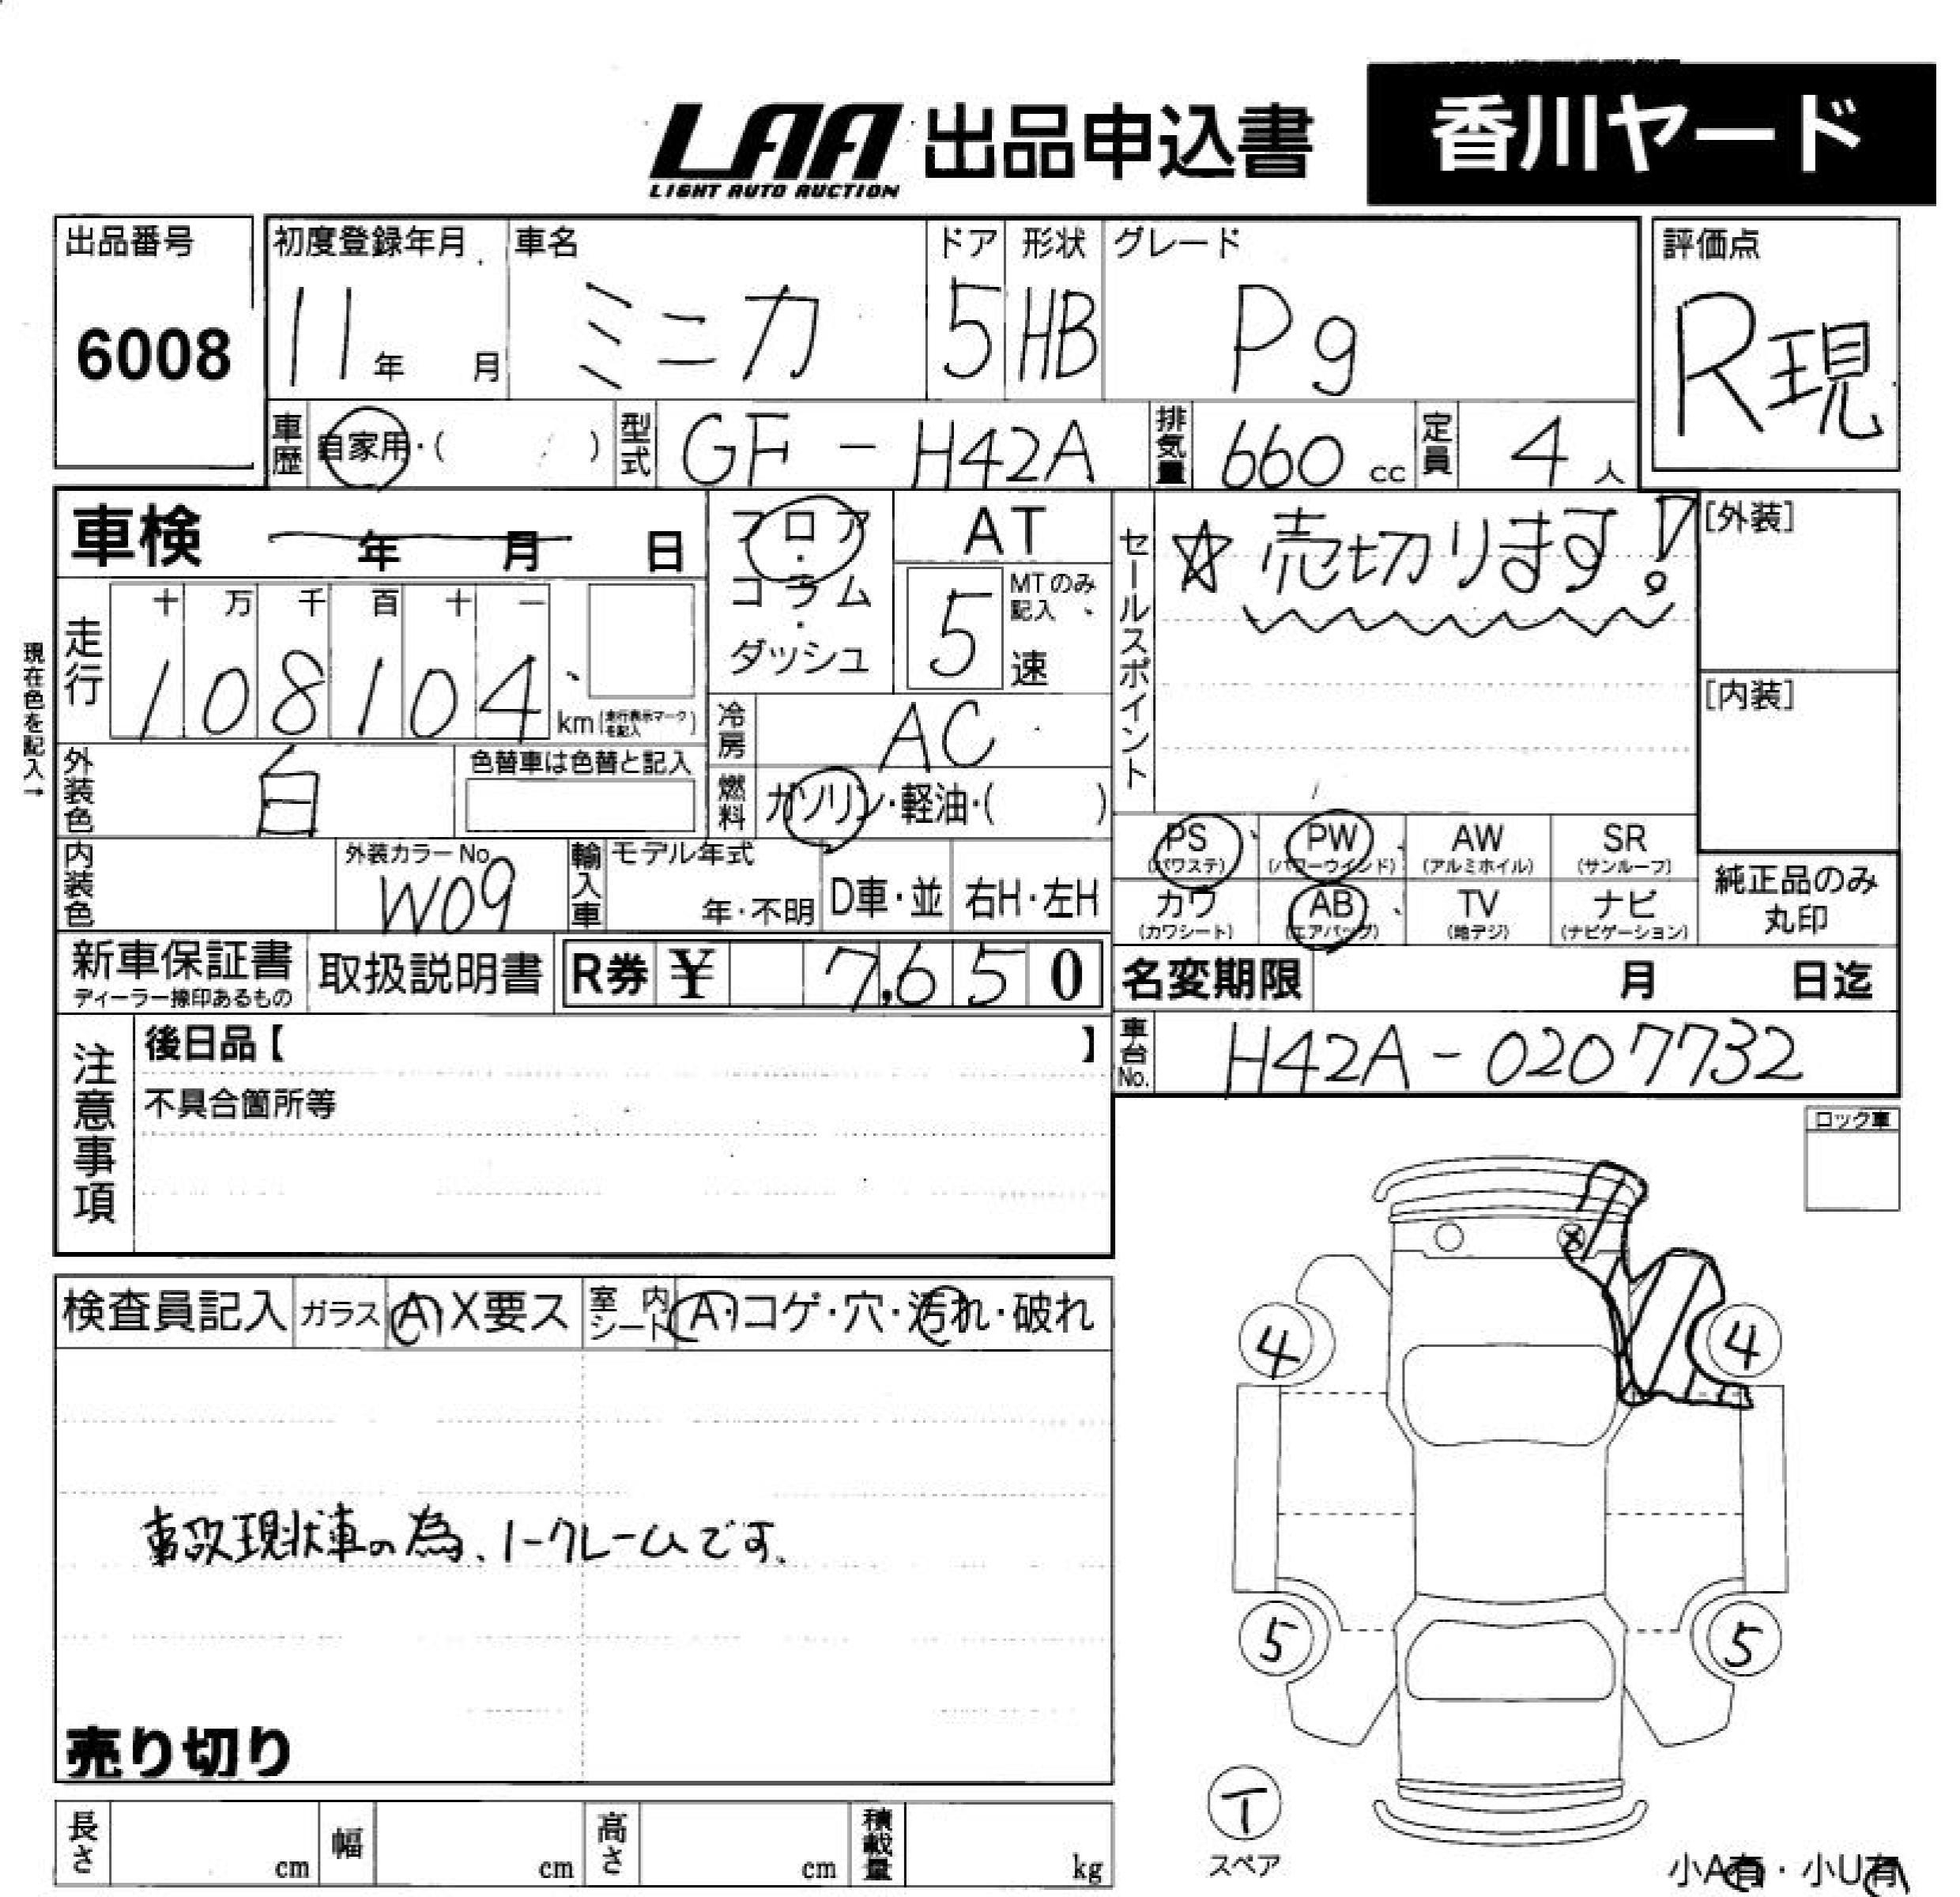 LAA 出品申込書 香川ヤード
LIGHT AUTO AUCTION
出品番号 初度登録年月 車名 ドア 形状 グレード 評価点
6008 11年 月 ミニカ 5 HB Pg R現
車歴 自家用・( ) 型式 GF-H42A 排気量 660cc 定員 4人
車検 年 月 日 フロア・コラム・ダッシュ AT
MTのみ記入 5速
セールスポイント ☆売切ります!
[外装]
[内装]
現在色を記入→
走行 十 万 千 百 十 一
108104 km(走行表示マークを記入)
冷房 AC
外装色 白 色替車は色替と記入
燃料 ガソリン・軽油・( )
PS PW AW SR
(パワステ) (パワーウインド) (アルミホイル) (サンルーフ)
内装色 外装カラーNo. W09 輸入車 モデル年式 年・不明 D車・並 右H・左H
カワ AB TV ナビ
(カワシート) (エアバッグ) (地デジ) (ナビゲーション)
純正品のみ
丸印
新車保証書 取扱説明書 R券 ¥ 7,650
ディーラー捺印あるもの
名変期限 月 日迄
注意事項 後日品【 】
車台No. H42A-0207732
不具合箇所等
ロック車
検査員記入 ガラス A X要ス 室内シート A・コゲ・穴・汚れ・破れ
4 4
事故現状車の為、ノークレームです。
5 5
売り切り
T
スペア
長さ cm 幅 cm 高さ cm 積載量 kg
小A有・小U有